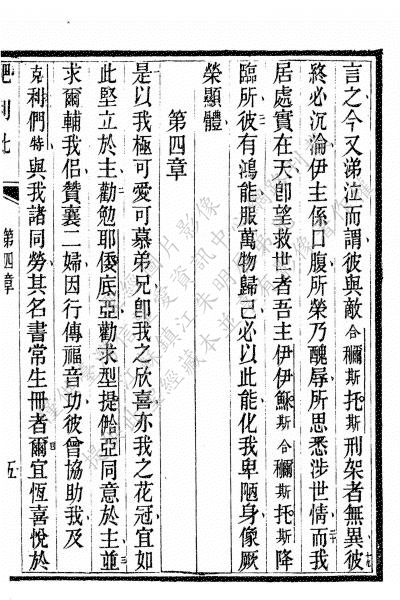 言之今又涕泣而謂彼與敵合穪斯托斯刑架者無異彼
終必沉淪伊主係口腹所榮乃醜辱所思悉涉世情而我
居處實在天卽望救世者吾主伊伊穌斯合穪斯托斯降
臨所彼有鴻能服萬物歸己必以此能化我卑陋身像厥
榮顯體
第四章
是以我極可愛可慕弟兄卽我之欣喜亦我之花冠宜如
此堅立於主勸勉耶倭底亞勸求型提佮亞同意於主並
求爾輔我侣贊襄二婦因行傳福音功彼曾協助我及
克利們特與我諸同勞其名書常生冊者爾宜恆喜悅於
第四章
五